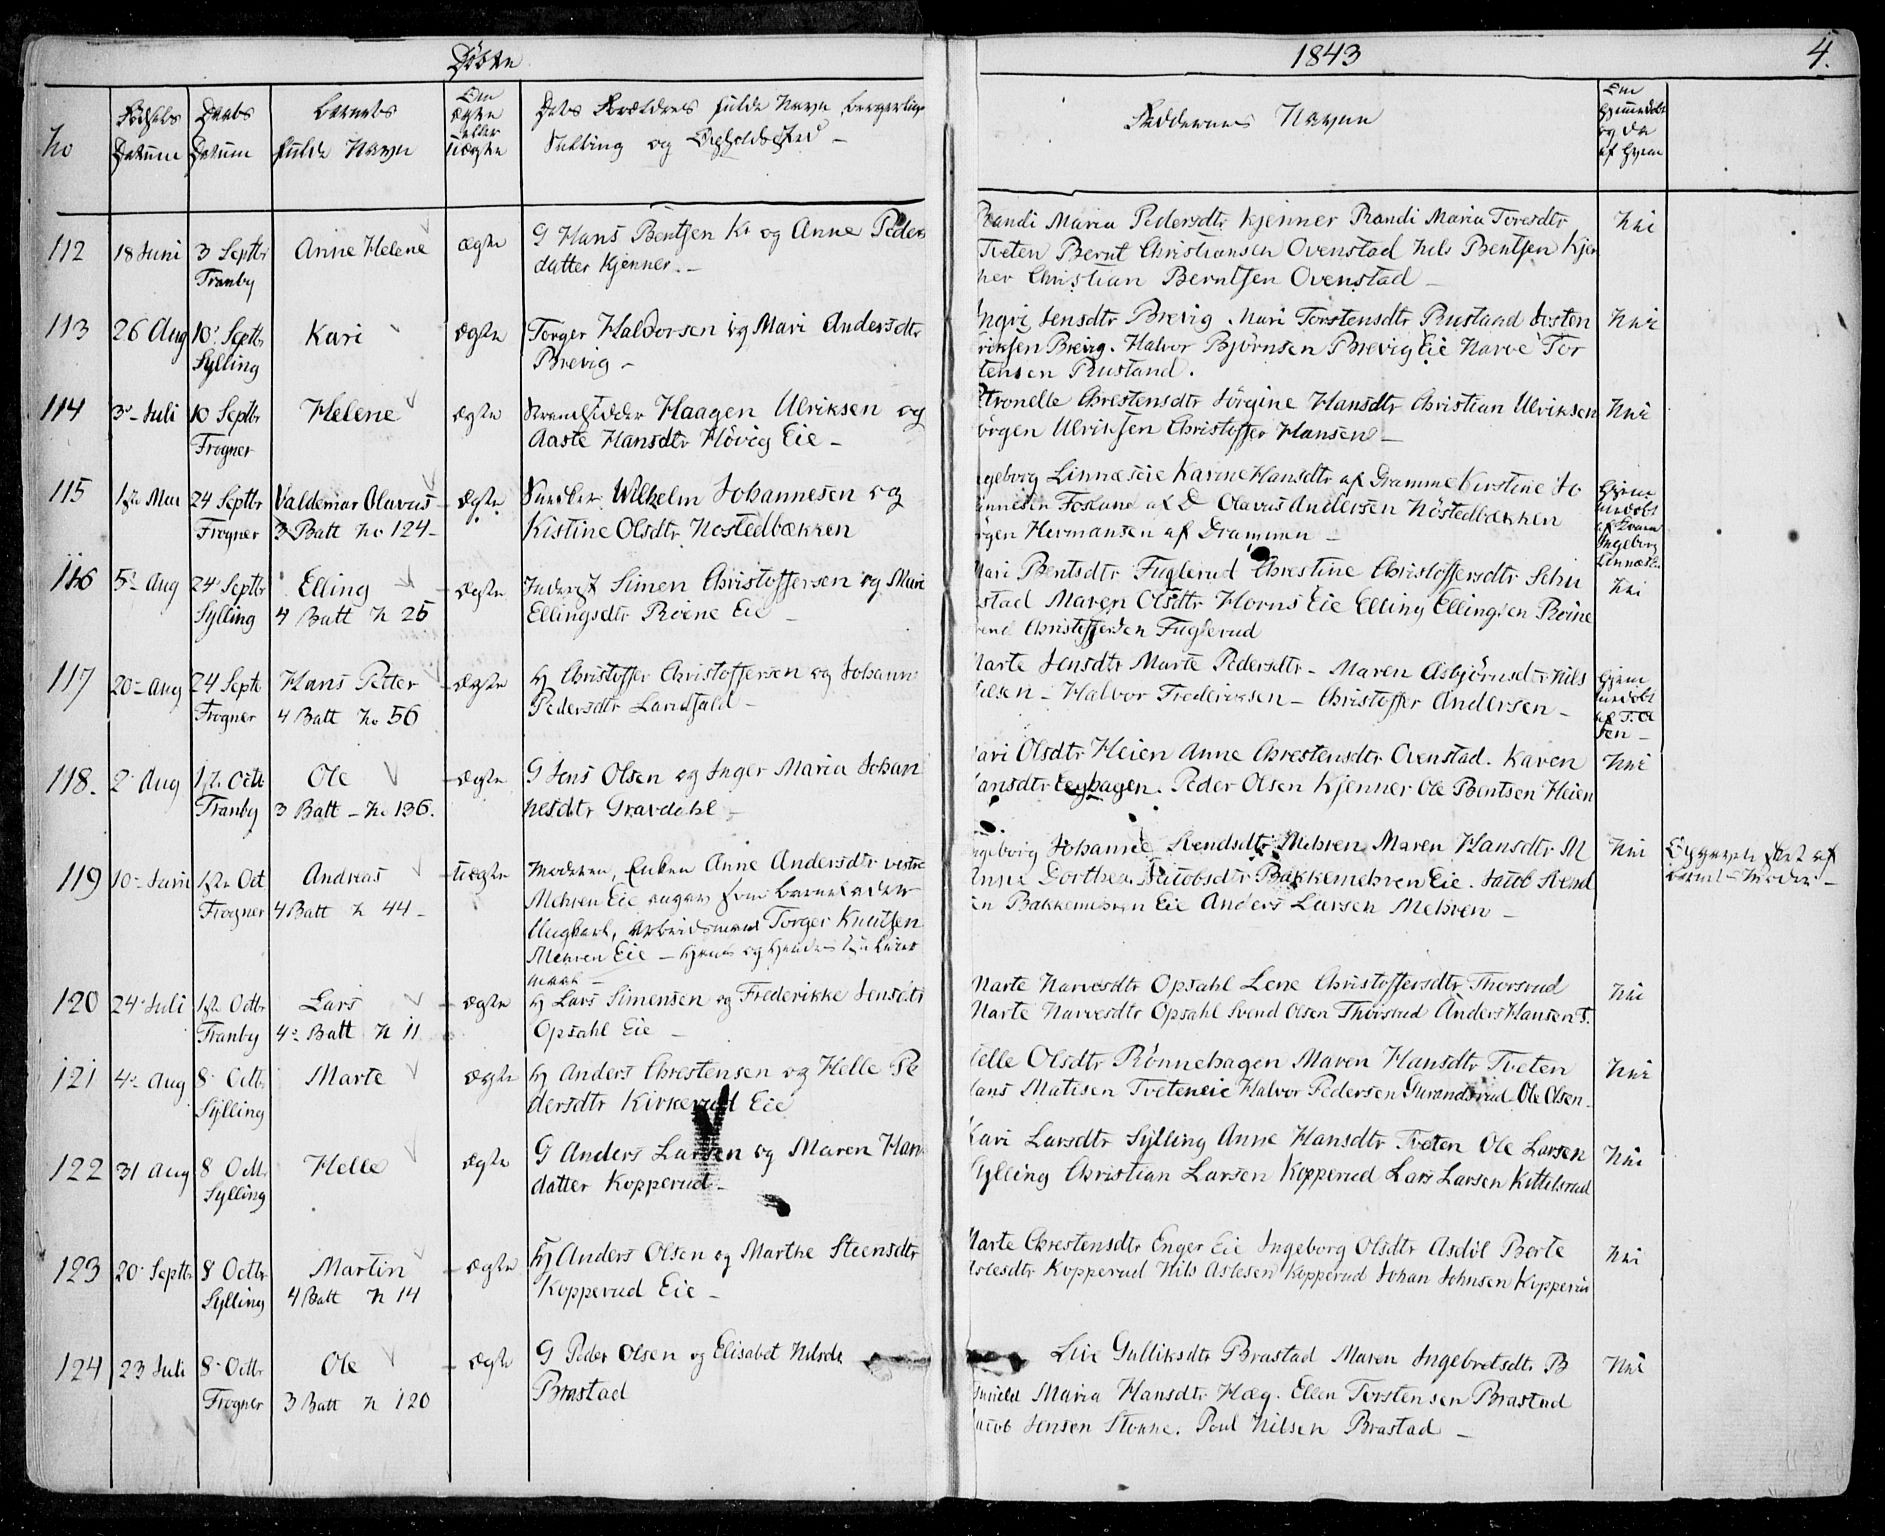 Døbte
1843
4.
No
Fødsels Datum
Daabs Datum
Barnets fulde Navn
Om Ægte eller Uægte
Dets Forældres fulde Navn, borgerlige
Stilling og Opholdssted –
Faddernes Navne
Om hjemmedøbt og da af hvem
112 18 Juni 3 Septbr Anne Helene ægte G Hans Bentsen Kr og Anne Peders
Tranby datter Kjenner. –
Randi Maria Pedersdtr Kjenner Randi Maria Toresdtr Nei
Tveten Bernt Christiansen Ovenstad Nils Bentsen Kjen
ner Christian Berntsen Ovenstad –
113 26 Aug 10 Septbr Kari ægte Torger Haldorsen og Mari Andersdtr
Sylling Brevig –
Ingri Jensdtr Brevig. Mari Torstensdtr Rustand Josten Nei
riksen Brevig. Halvor Bjørnsen Brevig Eie Narve Tor
stensen Rustand.
114 3 Juli 10 Septbr Helene ægte Haagen Ulriksen og
Frogner Aaste Hansdtr Høvig Eie –
Petronelle Chrestensdtr Jørgine Hansdtr Christian Ulriksen Nei
Jørgen Ulriksen Christoffer Hansen –
115 1ste Mai 24 Septbr Valdemar Olavus ægte Snedker Wilhelm Johannesen og
Frogner 3 Batt No 124 – Kistine Olsdtr Nøstedbækken
Ingeborg Linnæseie Karine Hansdtr af Dramme Kirstine Jo
annesen Fosland af D Olavus Andersen Nøstedbækken
ørgen Hermansen af Drammen –
Hjemmedøbt af Ingeborg Linnæseie
116 5 Aug 24 Septbr Elling ægte Inderst Simen Christoffersen og Mari
Sylling 4 Batt N 25 Ellingsdtr Røine Eie –
Mari Bentsdtr Fuglerud Chrestine Christoffersdtr Solu Nei
stad Maren Olsdtr Horns Eie Elling Ellingsen Røine
vend Christoffersen Fuglerud
117 20 Aug 24 Septbr Hans Petter ægte Hj Christoffer Christoffersen og Johann
Frogner 4 Batt No 56 Pedersdtr Landfald –
Marte Jensdtr Marte Pedersdtr – Maren Asbjørnsdtr Nils
Olsen – Halvor Frederiksen – Christoffer Andersen –
Hjemmedøbt af T. Olsen –
118. 2 Aug 1ste Octbr Ole ægte G Jens Olsen og Inger Maria Johan
Tranby 3 Batt – No 136. nesdtr Gravdahl –
Mari Olsdtr Heien Anne Chrestensdtr Ovenstad. Karen Nei
Hansdtr Leghagen. Peder Olsen Kjenner Ole Bentsen Heien
119 10 Juni 1ste Oct Andreas uægte Moderen, Enken Anne Andersdtr vestre
Frogner 4 Batt N 44 – Mehren Eie angav som Barnefader
Ungkarl, Arbeidsmand Torger Knutsen
Mehren Eie – hans og hendes
maal –
Ingeborg Johanne Svendsdtr Mehren Maren Hansdtr M Nei
Anne Dorthea Jacobsdtr Bakkemehren Eie. Jacob Svend
sen Bakkemehren Eie Anders Larsen Mehren –
Opgivet af Barnets Moder –
120 24 Juli 1ste Octbr Lars ægte Hj Lars Simensen og Frederikke Jensdtr
Tranby 4 Batt N 11 Opsahl Eie –
Marte Narvesdtr Opsahl Lene Christoffersdtr Thorsrud Nei
Marte Narvesdtr Opsahl Svend Olsen Thorsrud Anders Hansen T.
121 4 Aug 8 Octbr Marte ægte Hj Anders Chrestensen og Helle Pe
Sylling dersdtr Kirkerud Eie
Helle Olsdtr Rønnehagen Maren Hansdtr Tveten Nei
Hans Matisen Tveteneie Halvor Pedersen Gurandsrud Ole Olsen –
122 31 Aug 8 Octbr Helle ægte G Anders Larsen og Maren Hans
Sylling datter Kopperud –
Kari Larsdtr Sylling Anne Hansdtr Tveten Ole Larsen Nei
Sylling Christian Larsen Kopperud Lars Larsen Kittilsrud
123 20 Septbr 8 Octbr Martin ægte Hj Anders Olsen og Marthe Steensdtr
Sylling 4 Batt N 14 Kopperud Eie –
Marte Chrestensdtr Enger Eie Ingeborg Olsdtr Asdøl Berte Nei
Aslesdtr Kopperud Nils Aslesen Kopperud Johan Johnsen Kopperud
124 23 Juli 8 Octbr Ole ægte G Peder Olsen og Elisabet Nilsdtr
Frogner 3 Batt N 120 Brastad
Live Gulliksdtr Brastad Maren Ingebretsdtr B Nei
Maria Hansdtr Hæg. Ellen Torstensen Brastad
Jacob Jensen Stokke. Poul Nilsen Brastad –